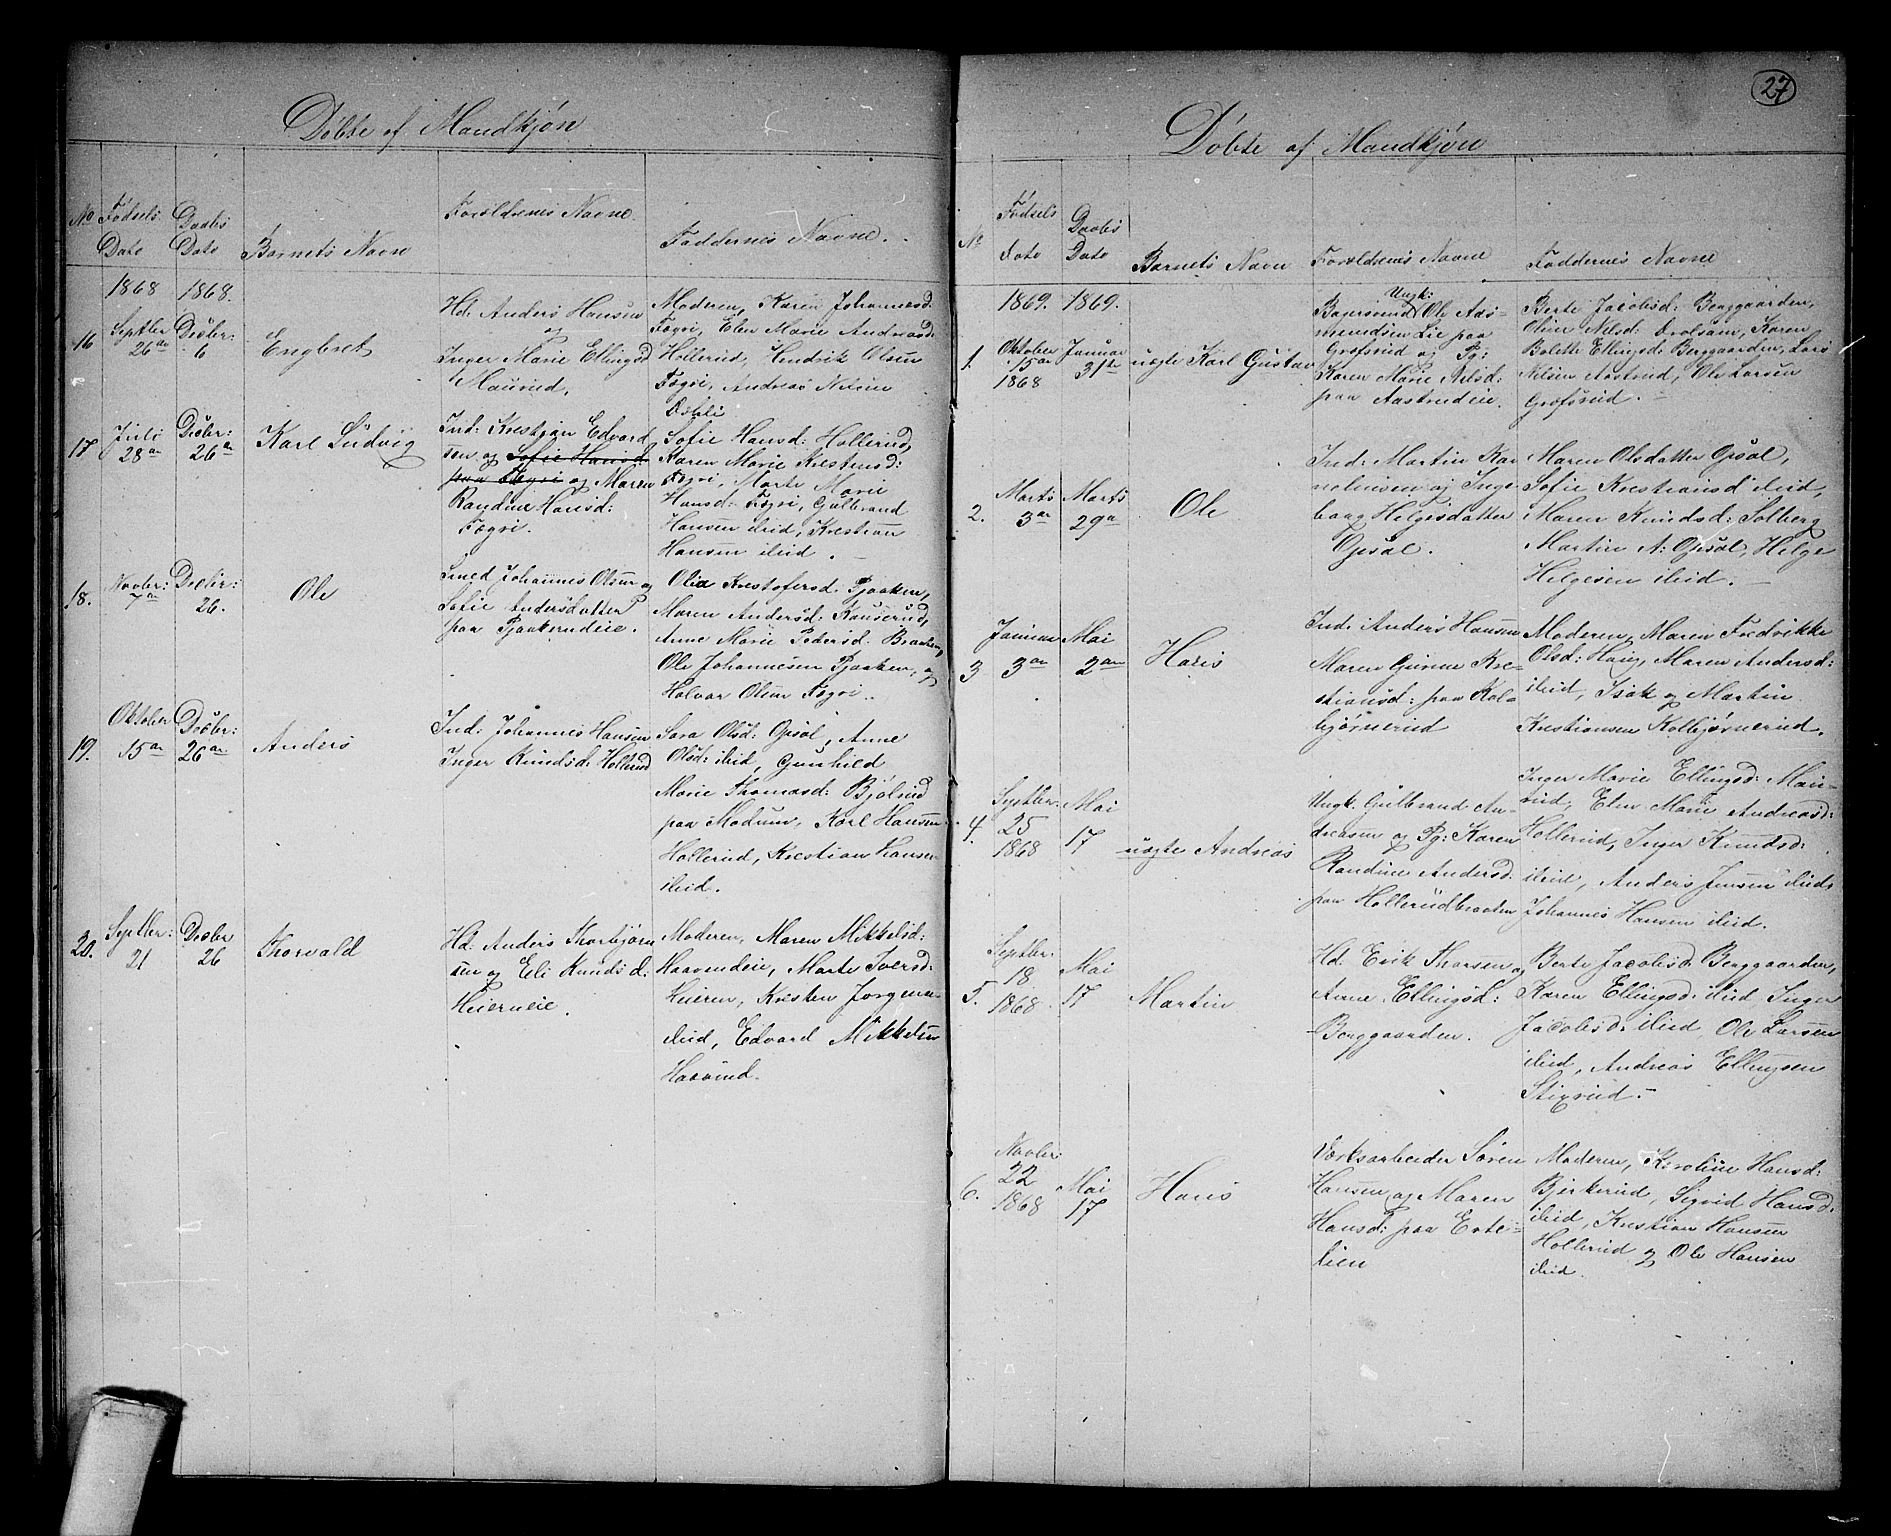 Døbte af Mandkjøn
No Fødsels Dato
Daabs Dato
Barnets Navn
Forældrenes Navne
Faddernes Navne.
1868 1868.
16
Septbr 26de
Desbr: 6
Engbret
Hd: Anders Hansen
og
Inger Marie Ellingsd
Maurud.
Moderen, Karen Johannesd:
Fægri, Elen Marie Andreasd:
Hollerud, Hendrik Olsen
Fægri, Andreas Nilsen
Dæhli
17
Juli 28de
Desbr: 26de
Karl Ludvig
Ind: Krestian Edvard
sen og Sofie Hansd:
paa Fægri og Maren
Randine Hansd:
Fægri.
Sofie Hansd: Hollerud,
Karen Marie Krestensd:
Fægri, Marte Marie
Hansd: Fægri, Gulbrand
Hansen ibid, Krestian
Hansen ibid.
18.
Novbr: 7de
Desbr: 26.
Ole
Smed Johannes Olsen og
Sofie Andersdatter
paa Pjaakerudeie.
Olia Krestofersd. Pjaaken,
Maren Andersd: Kauserud,
Anne Marie Pedersd. Braaten,
Ole Johannesen Pjaaken, og
Halvor Olsen Fægri.
19.
Oktober 15de
Desbr: 26de
Anders
Ind: Johannes Hansen
Inger Knudsd: Hollerud
Sara Olsd: Opsal, Anne
Olsd: ibid, Gunhild
Marie Thomasd: Bjølrud
paa Modum, Karl Hansen
Hollerud, Krestian Hansen
ibid.
20.
Septbr: 21
Desbr 26
Thorvald
Hd: Anders Thorbjørn
sen og Eli Knudsd:
Heiereie.
Moderen, Maren Mikkelsd:
Haavendeie, Marte Iversd:
Heieren, Kresten Jørgens.
ibid, Edvard Mikkelsen
Haavind.
27
Døbte af Mandkjøn
No
Fødsels Dato
Daabs Dato
Barnets Navn
Forældrenes Navne
Faddernes Navne
1869. 1869.
1.
Oktober 15de 1868
Januar 31te
uægte Karl Gustav
Ungk:
Ole Aas-
mundsen Lie paa
Græfsrud og Pg:
Karen Marie Nilsd:
paa Aastrudeie.
Berte Jacobsd: Berggaarden,
Oline Nilsd: Drolsum, Karen
Bolette Ellingsd: Berggaarden, Lars
Nilsen Aastrud, Ole Larsen
Græfsrud.
2.
Marts 3de
Marts 29de
Ole
Ind: Martin Kor
neliusen og Inge
borg Helgesdatter
Opsal.
Maren Olsdatter Opsal,
Sofie Krestiansd ibid,
Maren Knudsd: Solberg
Martin A: Opsal, Helge
Helgesen ibid.
3
Januar 3de
Mai 2den
Hans
Ind. Anders Hansen
Maren Gurine Kre-
stiansd: paa Kol-
bjørnerud
Moderen, Maren Fredrikke
Olsd: Haug, Maren Andersd:
ibid, Isak og Martin
Krestiansen Kolbjørnerud.
4.
Septbr: 25 1868
Mai 17
uægte Andreas
Ungk: Gulbrand An-
dreasen og Pg: Karen
Randine Andersd.
paa Hollerudbraaten
Inger Marie Ellingsd: Mau-
rud, Elen Marie Andreasd:
Hollerud, Inger Knudsd:
ibid, Anders Jensen ibid,
Johannes Hansen ibid.
5.
Septbr: 18 1868.
Mai 17
Martin
Hd. Erik Thorsen og
Anne Ellingsd:
Berggaarden.
Berte Jacobsd: Berggaarden,
Karen Ellingsd: ibid Inger
Jacobsd: ibid, Ole Larsen
ibid, Andreas Ellingsen
Stixrud.
6.
Novbr: 22 1868
Mai 17
Hans
Værksarbeider Søren
Hansen og Maren
Hansd: paa Erte-
lien
Moderen, Karoline Hansd:
Bjerkerud, Sigrid Hansd.
ibid, Krestian Hansen
Hollerud og Ole Hansen
ibid.